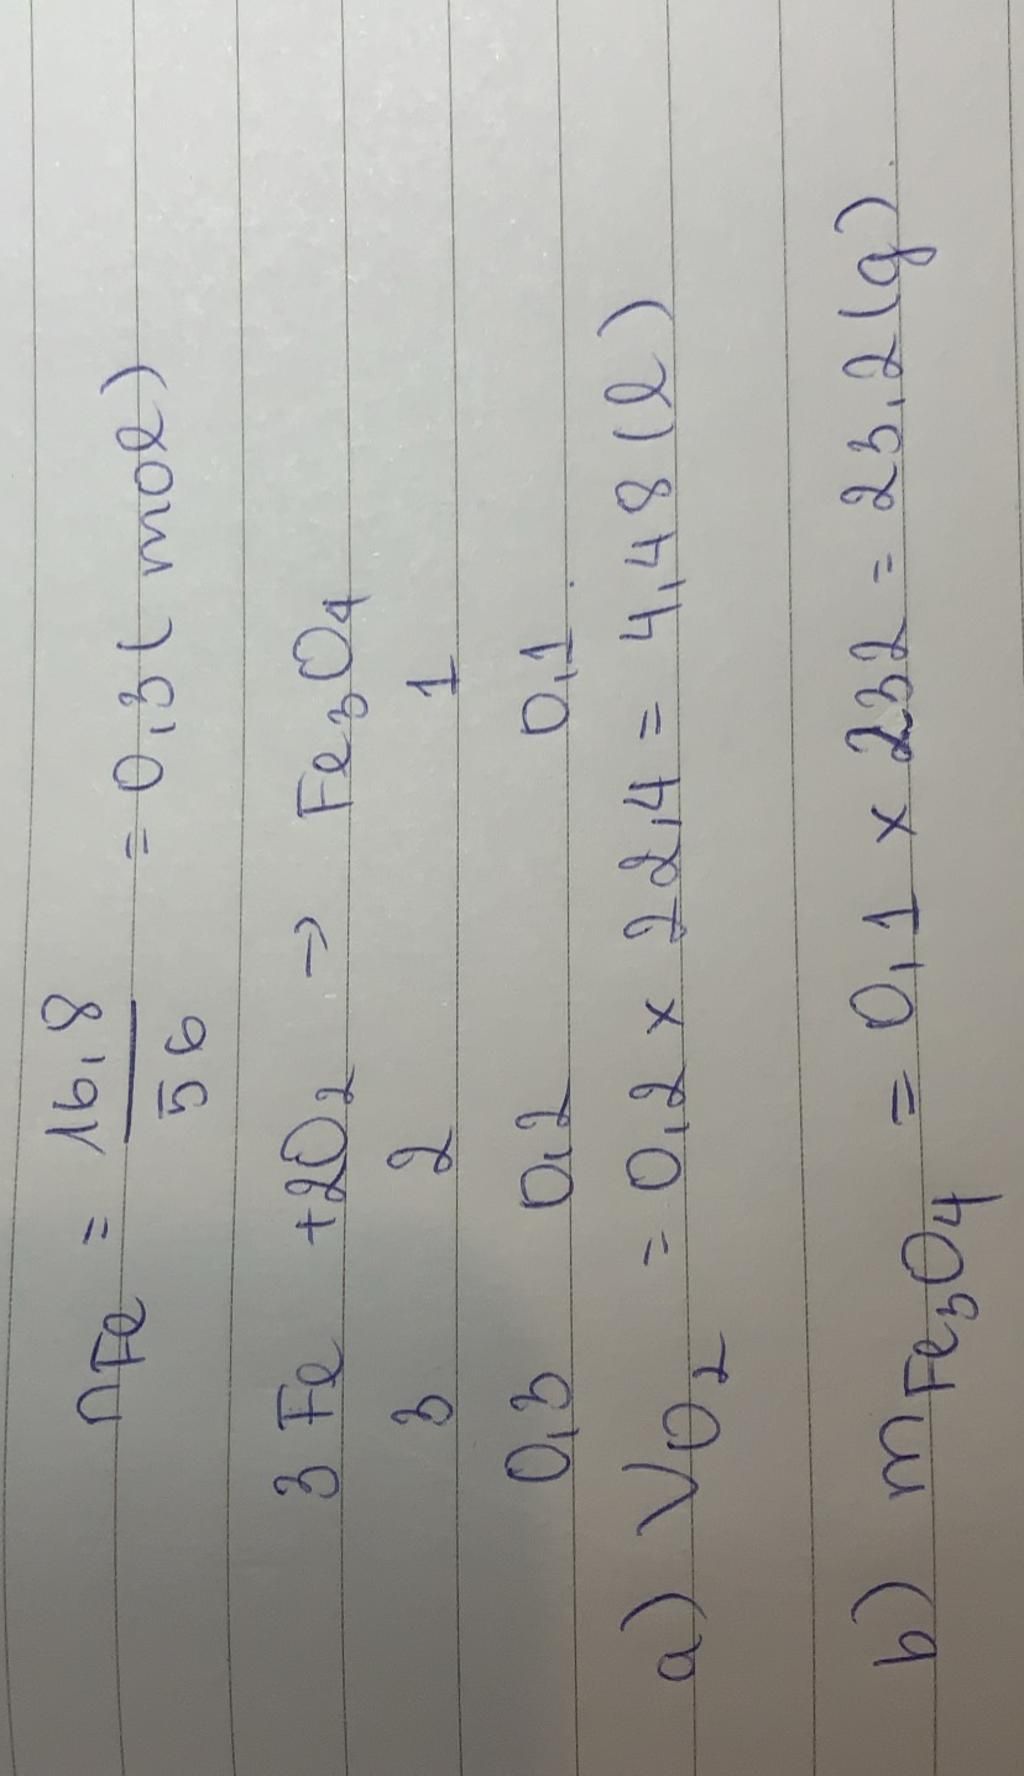 nFe = 16,8/56 = 0,3 (mol)
3 Fe + 2O2 → Fe3O4
3 2 1
0,3 0,2 0,1
a) VO2 = 0,2 x 22,4 = 4,48 (l)
b) mFe3O4 = 0,1 x 232 = 23,2 (g)